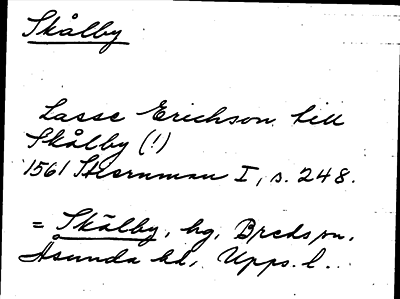 Skålby
Lasse Erichson till
Skålby (!)
1561 Stiernman I, s. 248.
= Skälby, hg, Bredspn.
Åsunda hd, Upps. l.